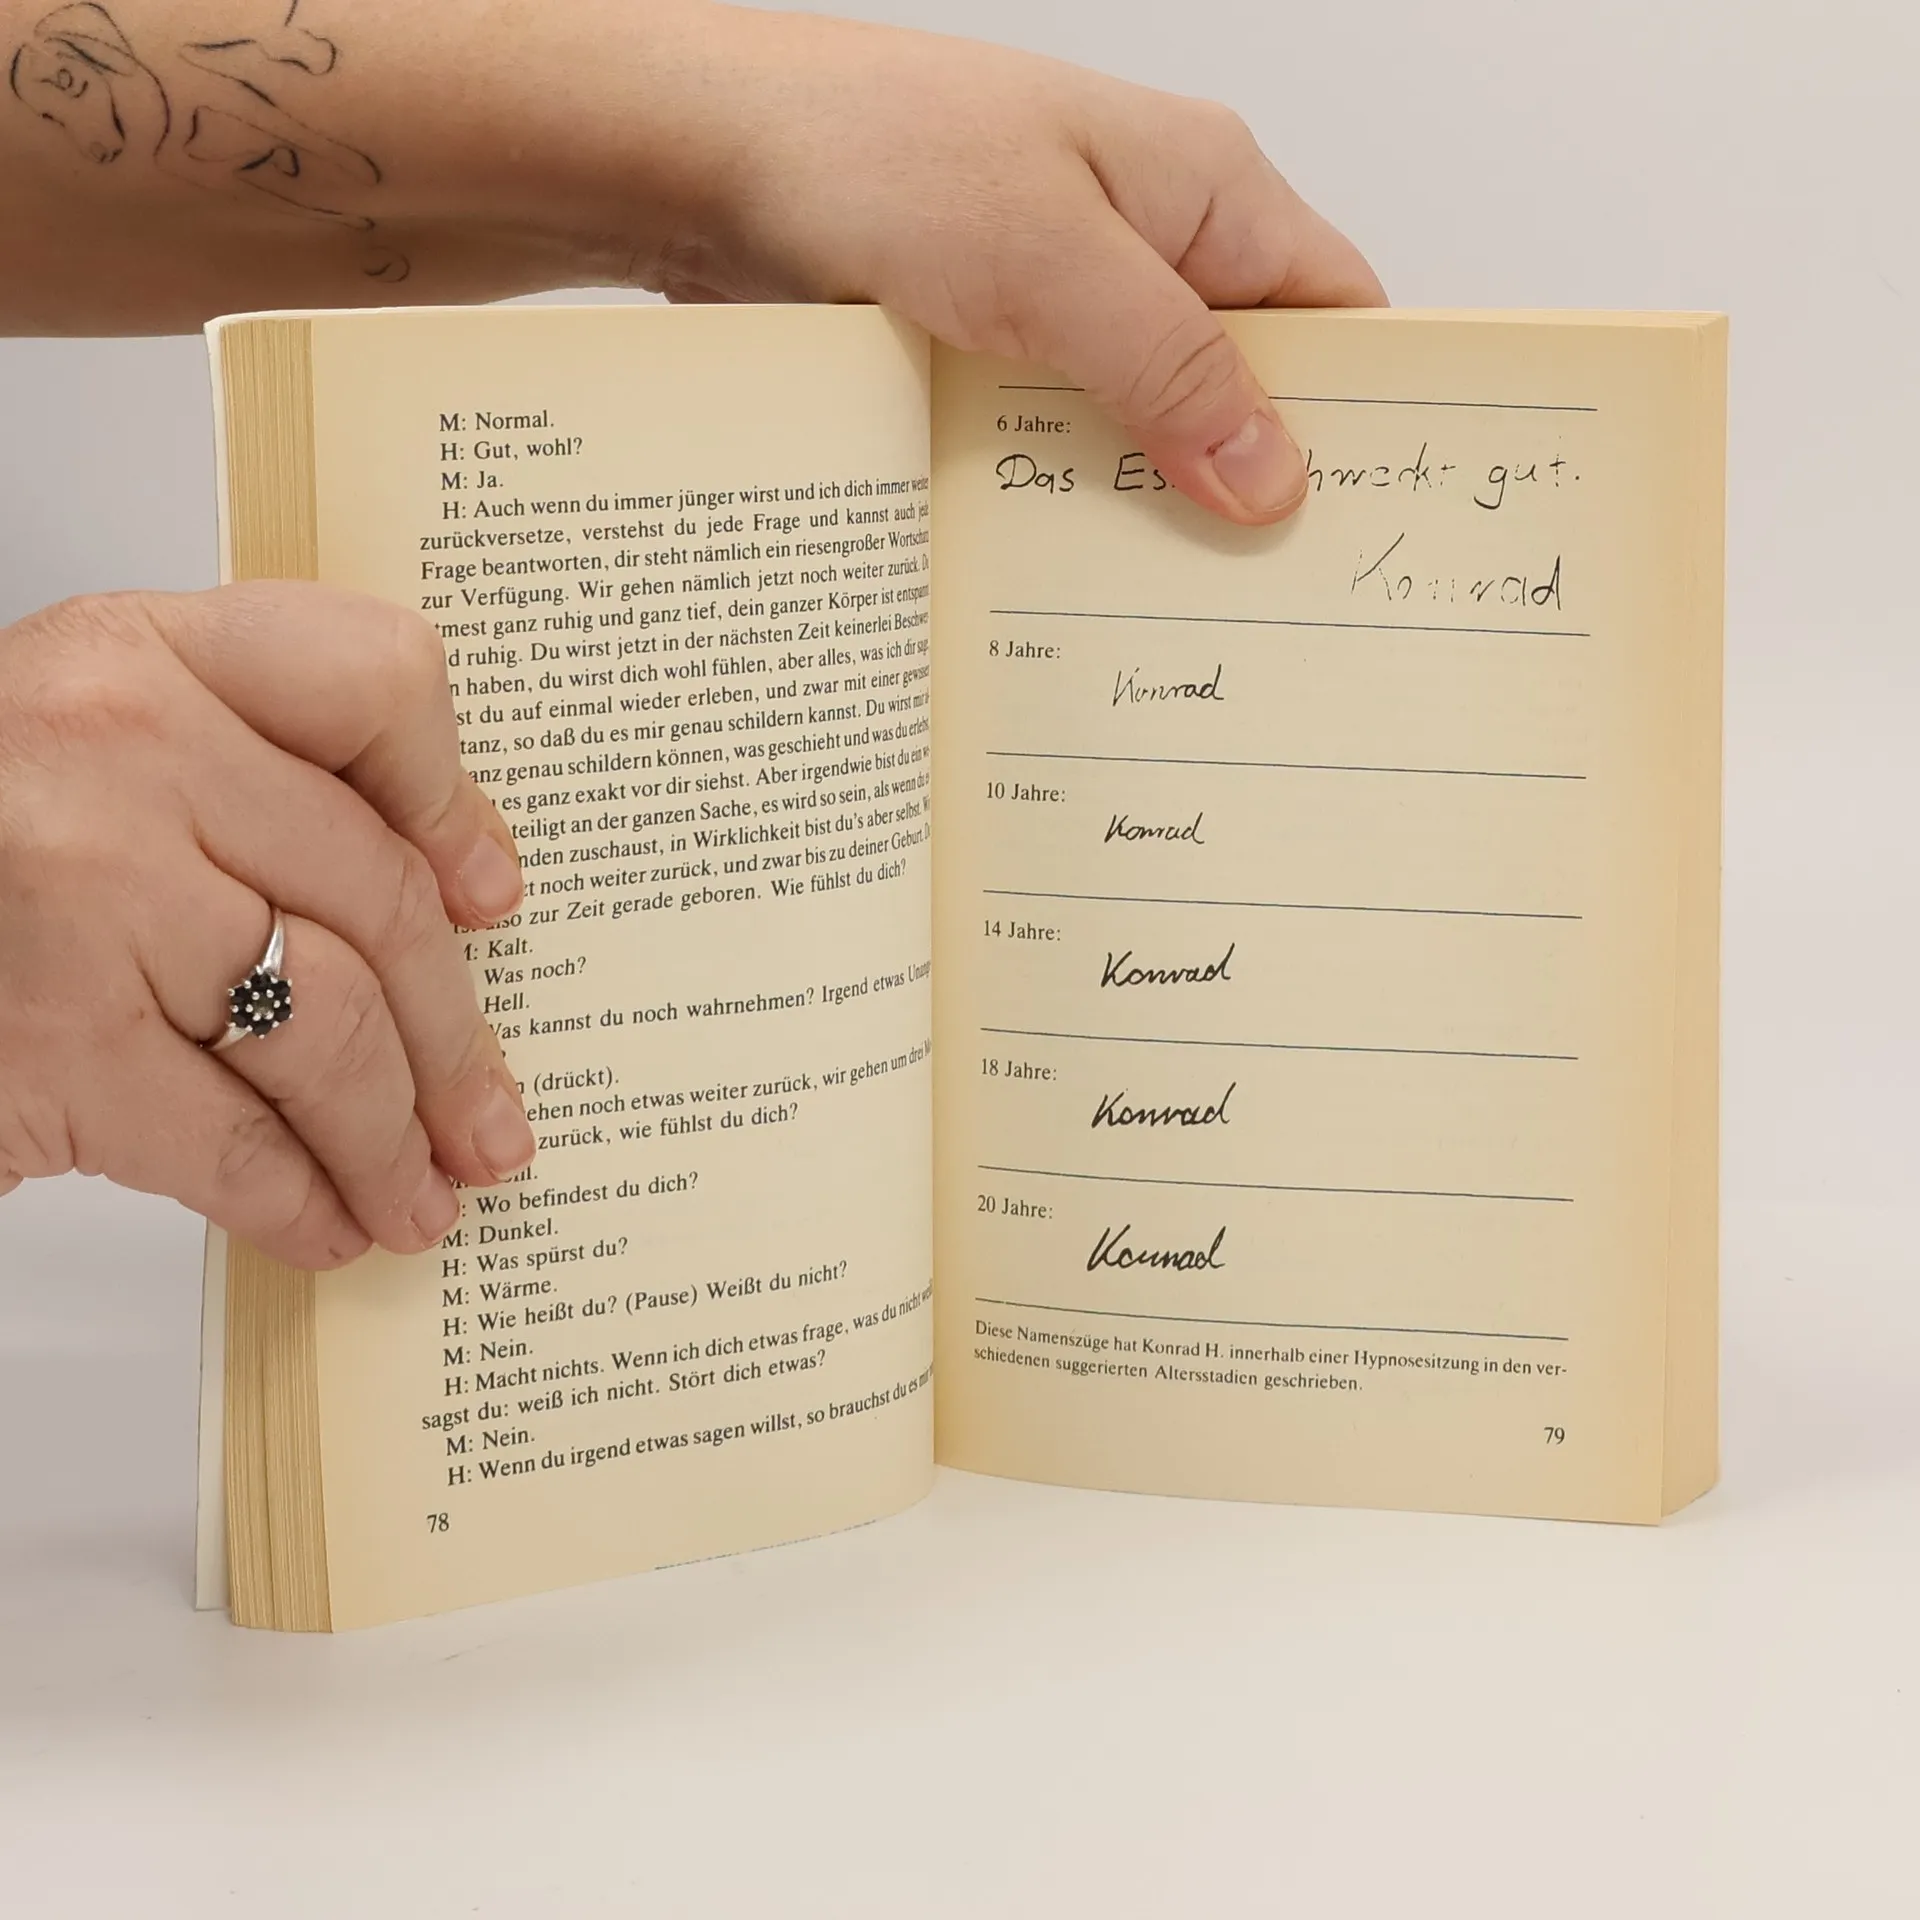 M: Normal.
H: Gut, wohl?
M: Ja.
H: Auch wenn du immer jünger wirst und ich dich immer weiter
zurückversetze, verstehst du jede Frage und kannst auch jede
Frage beantworten, dir steht nämlich ein riesengroßer
zur Verfügung. Wir gehen nämlich jetzt noch weiter zurück.
ganz ruhig und ganz tief, dein ganzer Körper ist
ruhig. Du wirst jetzt in der nächsten Zeit keinerlei
haben, du wirst dich wohl fühlen, aber alles, was ich dir
du auf einmal wieder erleben, und zwar mit einer
so daß du es mir genau schildern kannst. Du wirst
genau schildern können, was geschieht und was du
es ganz exakt vor dir siehst. Aber irgendwie bist du ein
an der ganzen Sache, es wird so sein, als wenn du
zuschaust, in Wirklichkeit bist du's aber selbst.
noch weiter zurück, und zwar bis zu deiner Geburt.
zur Zeit gerade geboren. Wie fühlst du dich?
Kalt.
Was noch?
Hell.
kannst du noch wahrnehmen? Irgend etwas
(drückt).
noch etwas weiter zurück, wir gehen um drei
zurück, wie fühlst du dich?
Wo befindest du dich?
M: Dunkel.
H: Was spürst du?
M: Wärme.
H: Wie heißt du? (Pause) Weißt du nicht?
M: Nein.
H: Macht nichts. Wenn ich dich etwas frage, was du nicht
sagst du: weiß ich nicht. Stört dich etwas?
M: Nein.
H: Wenn du irgend etwas sagen willst, so brauchst du es
78
6 Jahre:
Das gut.
Konrad
8 Jahre:
Konrad
10 Jahre:
Konrad
14 Jahre:
Konrad
18 Jahre:
Konrad
20 Jahre:
Konrad
Diese Namenszüge hat Konrad H. innerhalb einer Hypnosesitzung in den ver-
schiedenen suggerierten Altersstadien geschrieben.
79